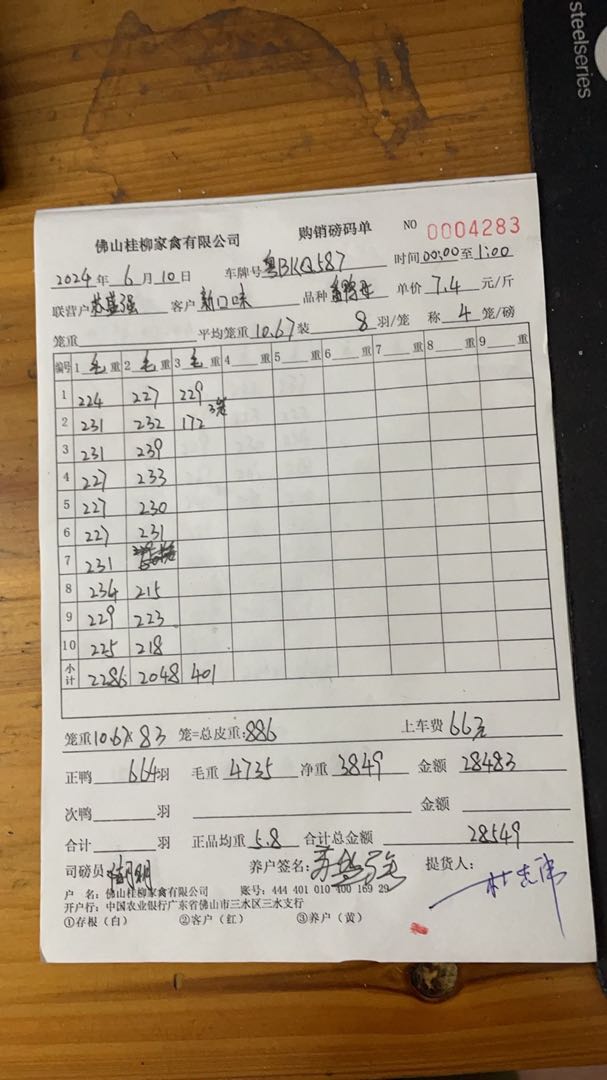 steelseries
佛山桂柳家禽有限公司 购销磅码单 NO 0004283
2024年 6月10日 车牌号粤BKQ587 时间00:00至1:00
联营户 强 客户 新口味 品种 单价 7.4 元/斤
笼重 平均笼重10.67装 8 羽/笼 称 4 笼/磅
编号 1 毛 重 2 毛 重 3 毛 重 4 重 5 重 6 重 7 重 8 重 9 重
1 224 227 229
2 231 232 172 3笼
3 231 239
4 227 233
5 227 230
6 227 231
7 231
8 234 215
9 229 223
10 225 218
小计 2286 2048 401
笼重10.67×83 笼=总皮重:886 上车费 66元
正鸭 664羽 毛重 4735 净重 3849 金额 28483
次鸭 羽 金额
合计 羽 正品均重 5.8 合计总金额 28549
司磅员 养户签名: 提货人:
户 名: 佛山桂柳家禽有限公司 账号: 444 401 010 400 169 29
开户行: 中国农业银行广东省佛山市三水区三水支行
①存根(白) ②客户(红) ③养户(黄)